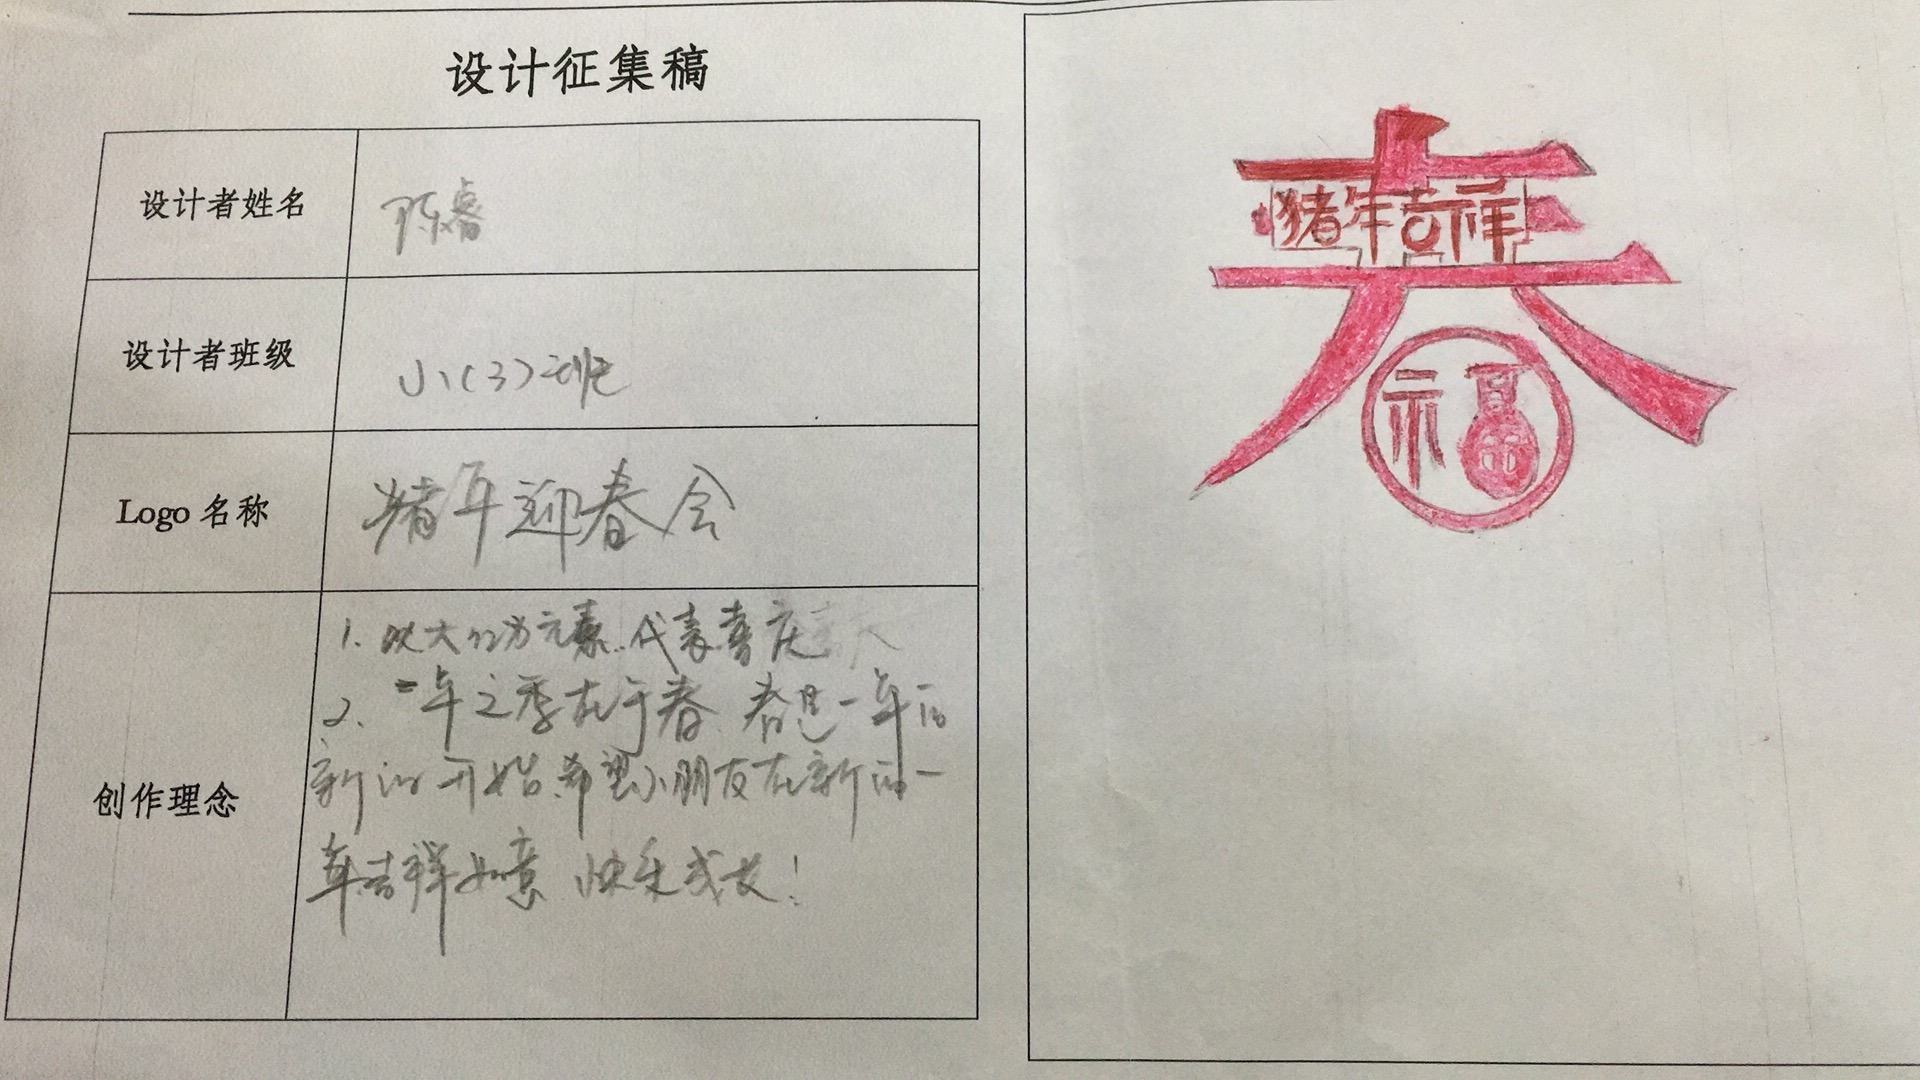 设计征集稿
设计者姓名
陈睿
设计者班级
小(3)班
Logo 名称
猪年迎春会
创作理念
1. 以大红为元素. 代表喜庆
2. 一年之季在于春 春是一年的
新的开始. 希望小朋友在新的一
年吉祥如意 快乐成长!
春
猪年吉祥
福